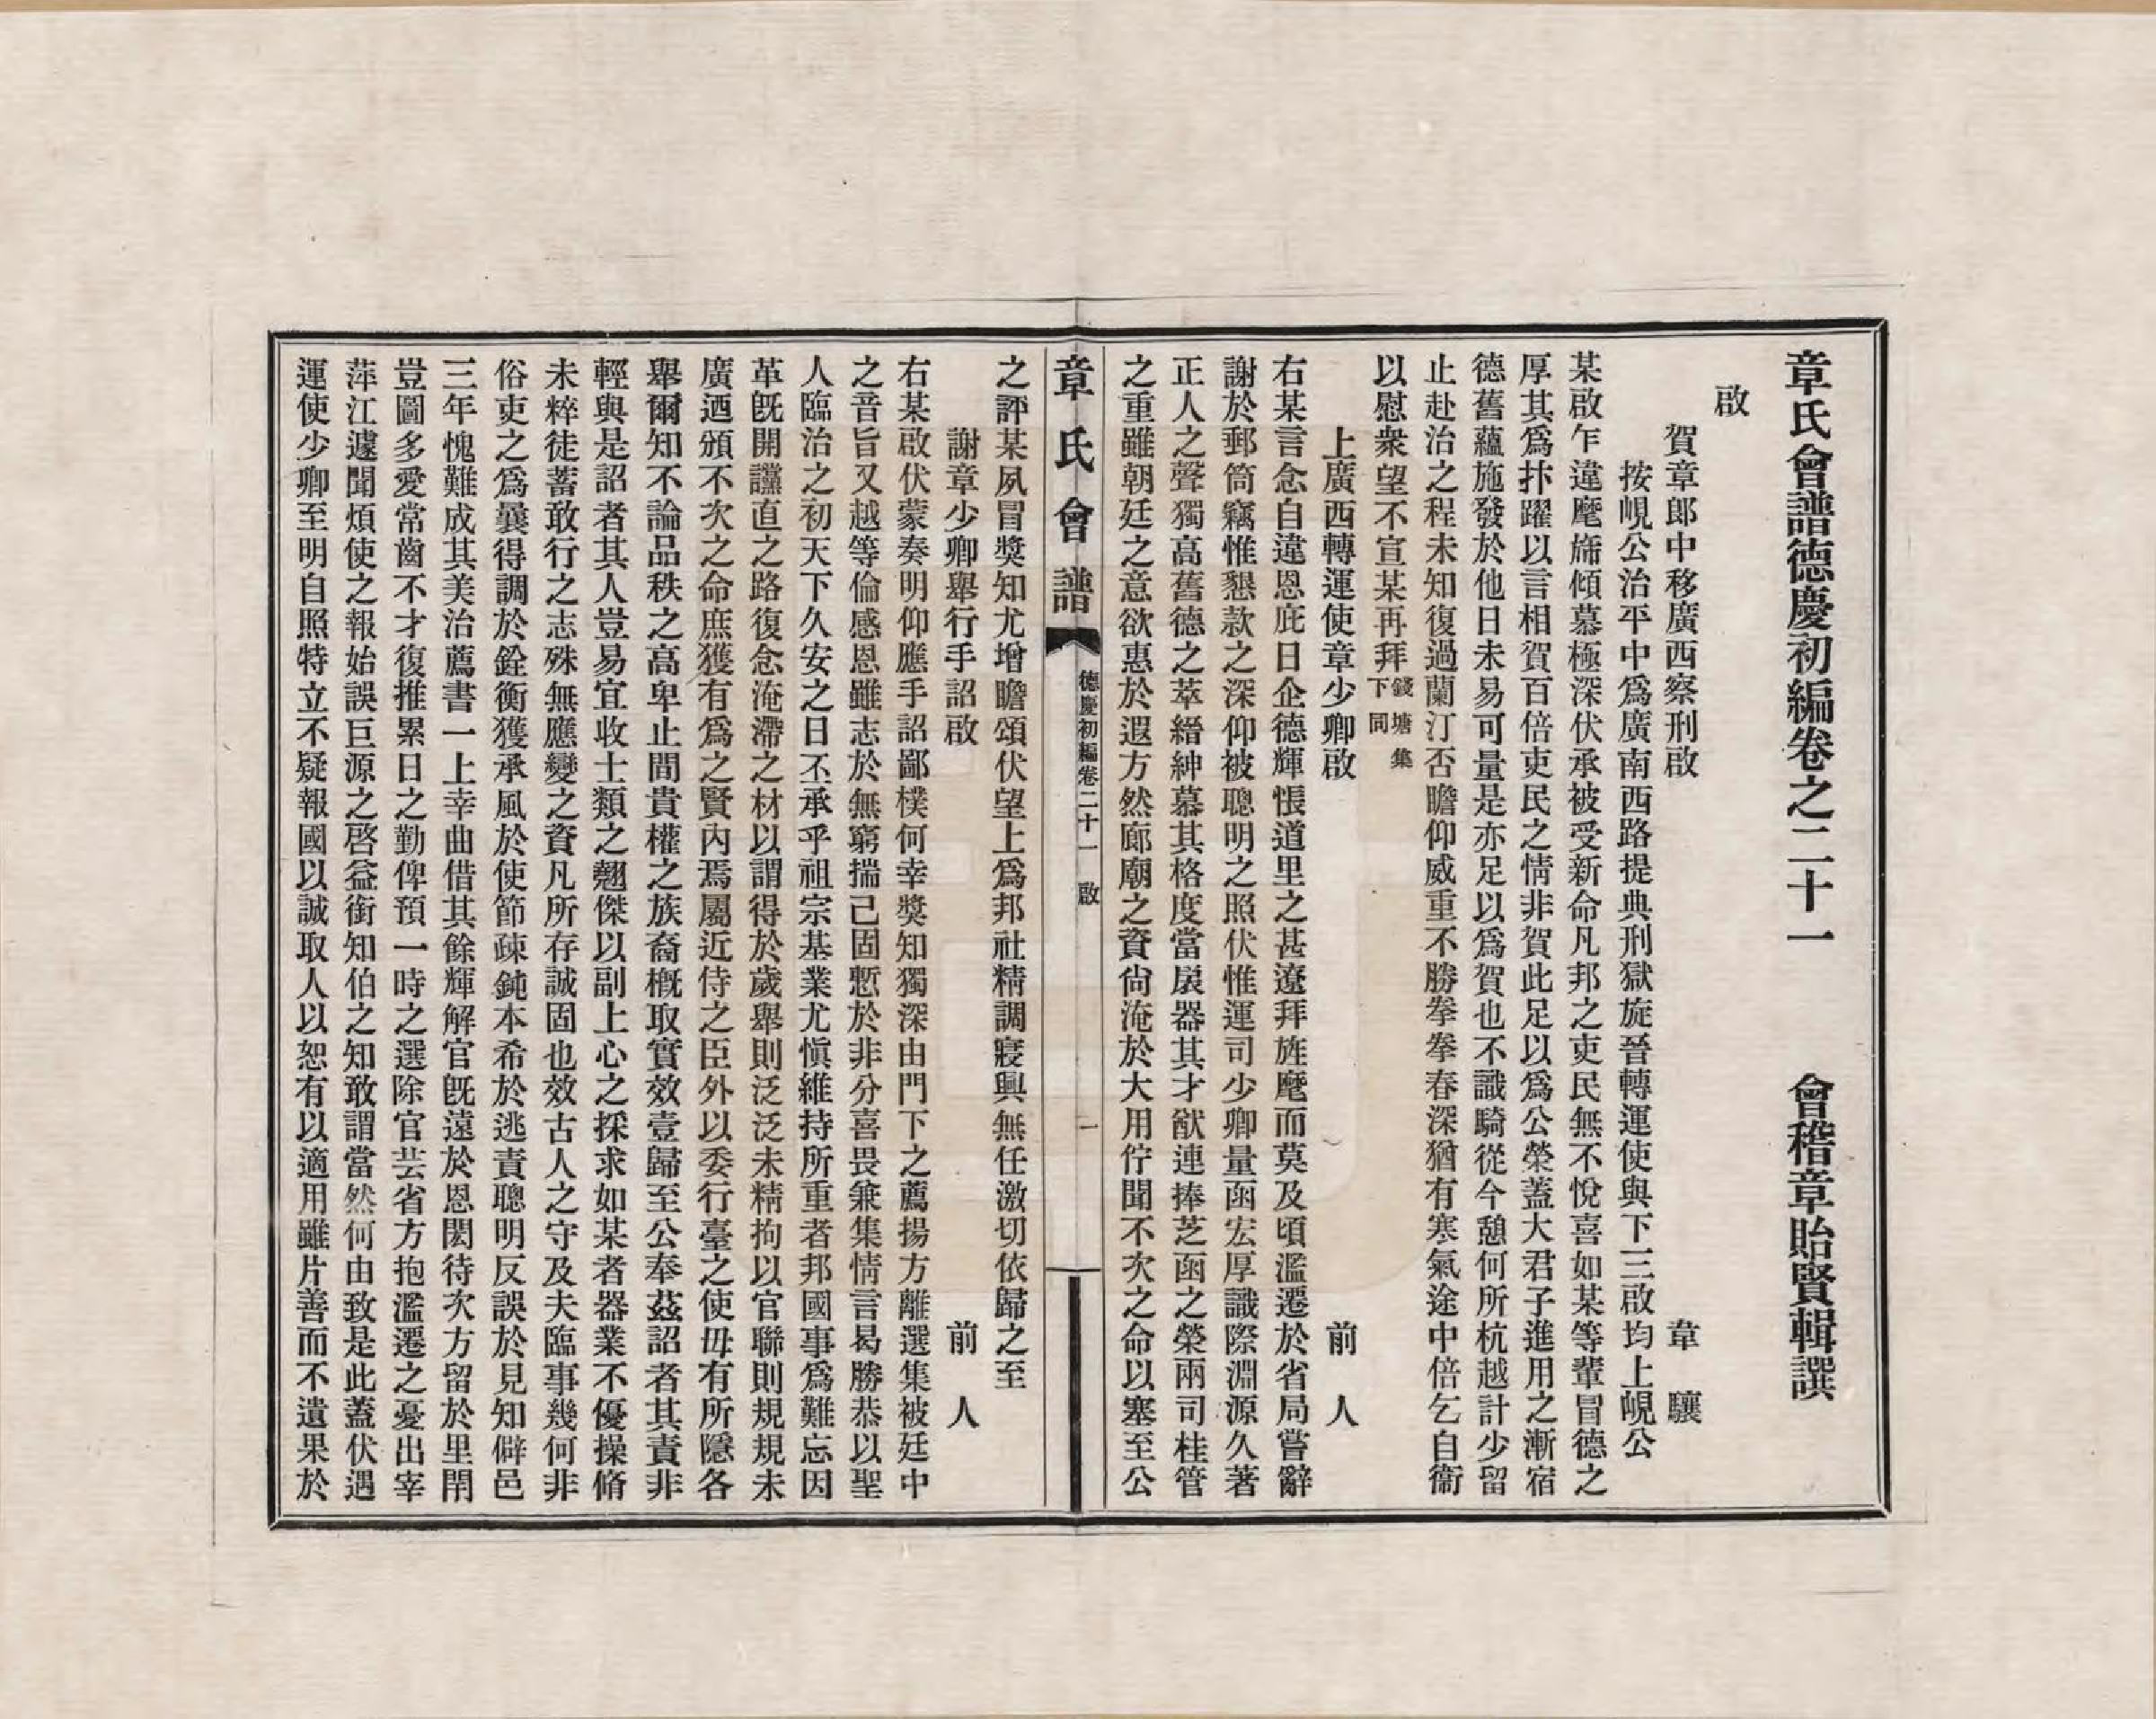 章氏會譜德慶初編卷之二十一　會稽章貽賢輯譔
啟
賀章郎中移廣西察刑啟　韋驤
按峴公治平中爲廣南西路提典刑獄旋晉轉運使與下三啟均上峴公
某啟乍違麾旆傾慕極深伏承被受新命凡邦之吏民無不悅喜如某等輩冒德之
厚其爲抃躍以言相賀百倍吏民之情非賀此足以爲公榮蓋大君子進用之漸宿
德舊蘊施發於他日未易可量是亦足以爲賀也不識騎從今憩何所杭越計少留
止赴治之程未知復過蘭汀否瞻仰威重不勝拳拳春深猶有寒氣途中倍乞自衞
以慰衆望不宣某再拜錢塘集下同
上廣西轉運使章少卿啟　前人
右某言念自違恩庇日企德輝悵道里之甚遼拜旌麾而莫及頃濫遷於省局嘗辭
謝於郵筒竊惟懇款之深仰被聰明之照伏惟運司少卿量函宏厚識際淵源久著
正人之聲獨高舊德之萃縉紳慕其格度當扆器其才猷連捧芝函之榮兩司桂管
之重雖朝廷之意欲惠於遐方然廊廟之資尙淹於大用佇聞不次之命以塞至公
章氏會譜　德慶初編卷二十一　啟　一
之評某夙冒獎知尤增瞻頌伏望上爲邦社精調寢興無任激切依歸之至
謝章少卿舉行手詔啟　前人
右某啟伏蒙奏明仰應手詔鄙樸何幸獎知獨深由門下之薦揚方離選集被廷中
之音旨又越等倫感恩雖志於無窮揣己固慙於非分喜畏兼集情言曷勝恭以聖
人臨治之初天下久安之日丕承乎祖宗基業尤愼維持所重者邦國事爲難忘因
革旣開讜直之路復念淹滯之材以謂得於歲舉則泛泛未精拘以官聯則規規未
廣迺頒不次之命庶獲有爲之賢內焉屬近侍之臣外以委行臺之使毋有所隱各
舉爾知不論品秩之高卑止間貴權之族裔概取實效壹歸至公奉茲詔者其責非
輕與是詔者其人豈易宜收士類之翹傑以副上心之採求如某者器業不優操脩
未粹徒蓄敢行之志殊無應變之資凡所存誠固也效古人之守及夫臨事幾何非
俗吏之爲曩得調於銓衡獲承風於使節疎鈍本希於逃責聰明反誤於見知僻邑
三年愧難成其美治薦書一上幸曲借其餘輝解官旣遠於恩閎待次方留於里閈
豈圖多愛常齒不才復推累日之勤俾預一時之選除官芸省方抱濫遷之憂出宰
萍江遽聞煩使之報始誤巨源之啓益銜知伯之知敢謂當然何由致是此蓋伏遇
運使少卿至明自照特立不疑報國以誠取人以恕有以適用雖片善而不遺果於